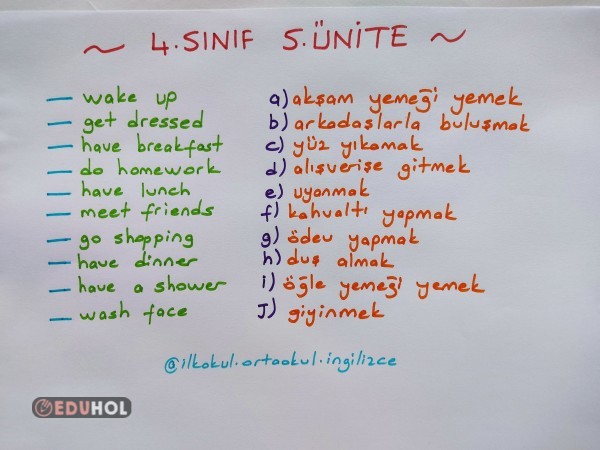 ~ 4.SINIF 5.ÜNİTE ~
— wake up a) akşam yemeği yemek
— get dressed b) arkadaşlarla buluşmak
— have breakfast c) yüz yıkamak
— do homework d) alışverişe gitmek
— have lunch e) uyanmak
— meet friends f) kahvaltı yapmak
— go shopping g) ödev yapmak
— have dinner h) duş almak
— have a shower i) öğle yemeği yemek
— wash face J) giyinmek
@ilkokul.ortaokul.ingilizce
EDUHOL